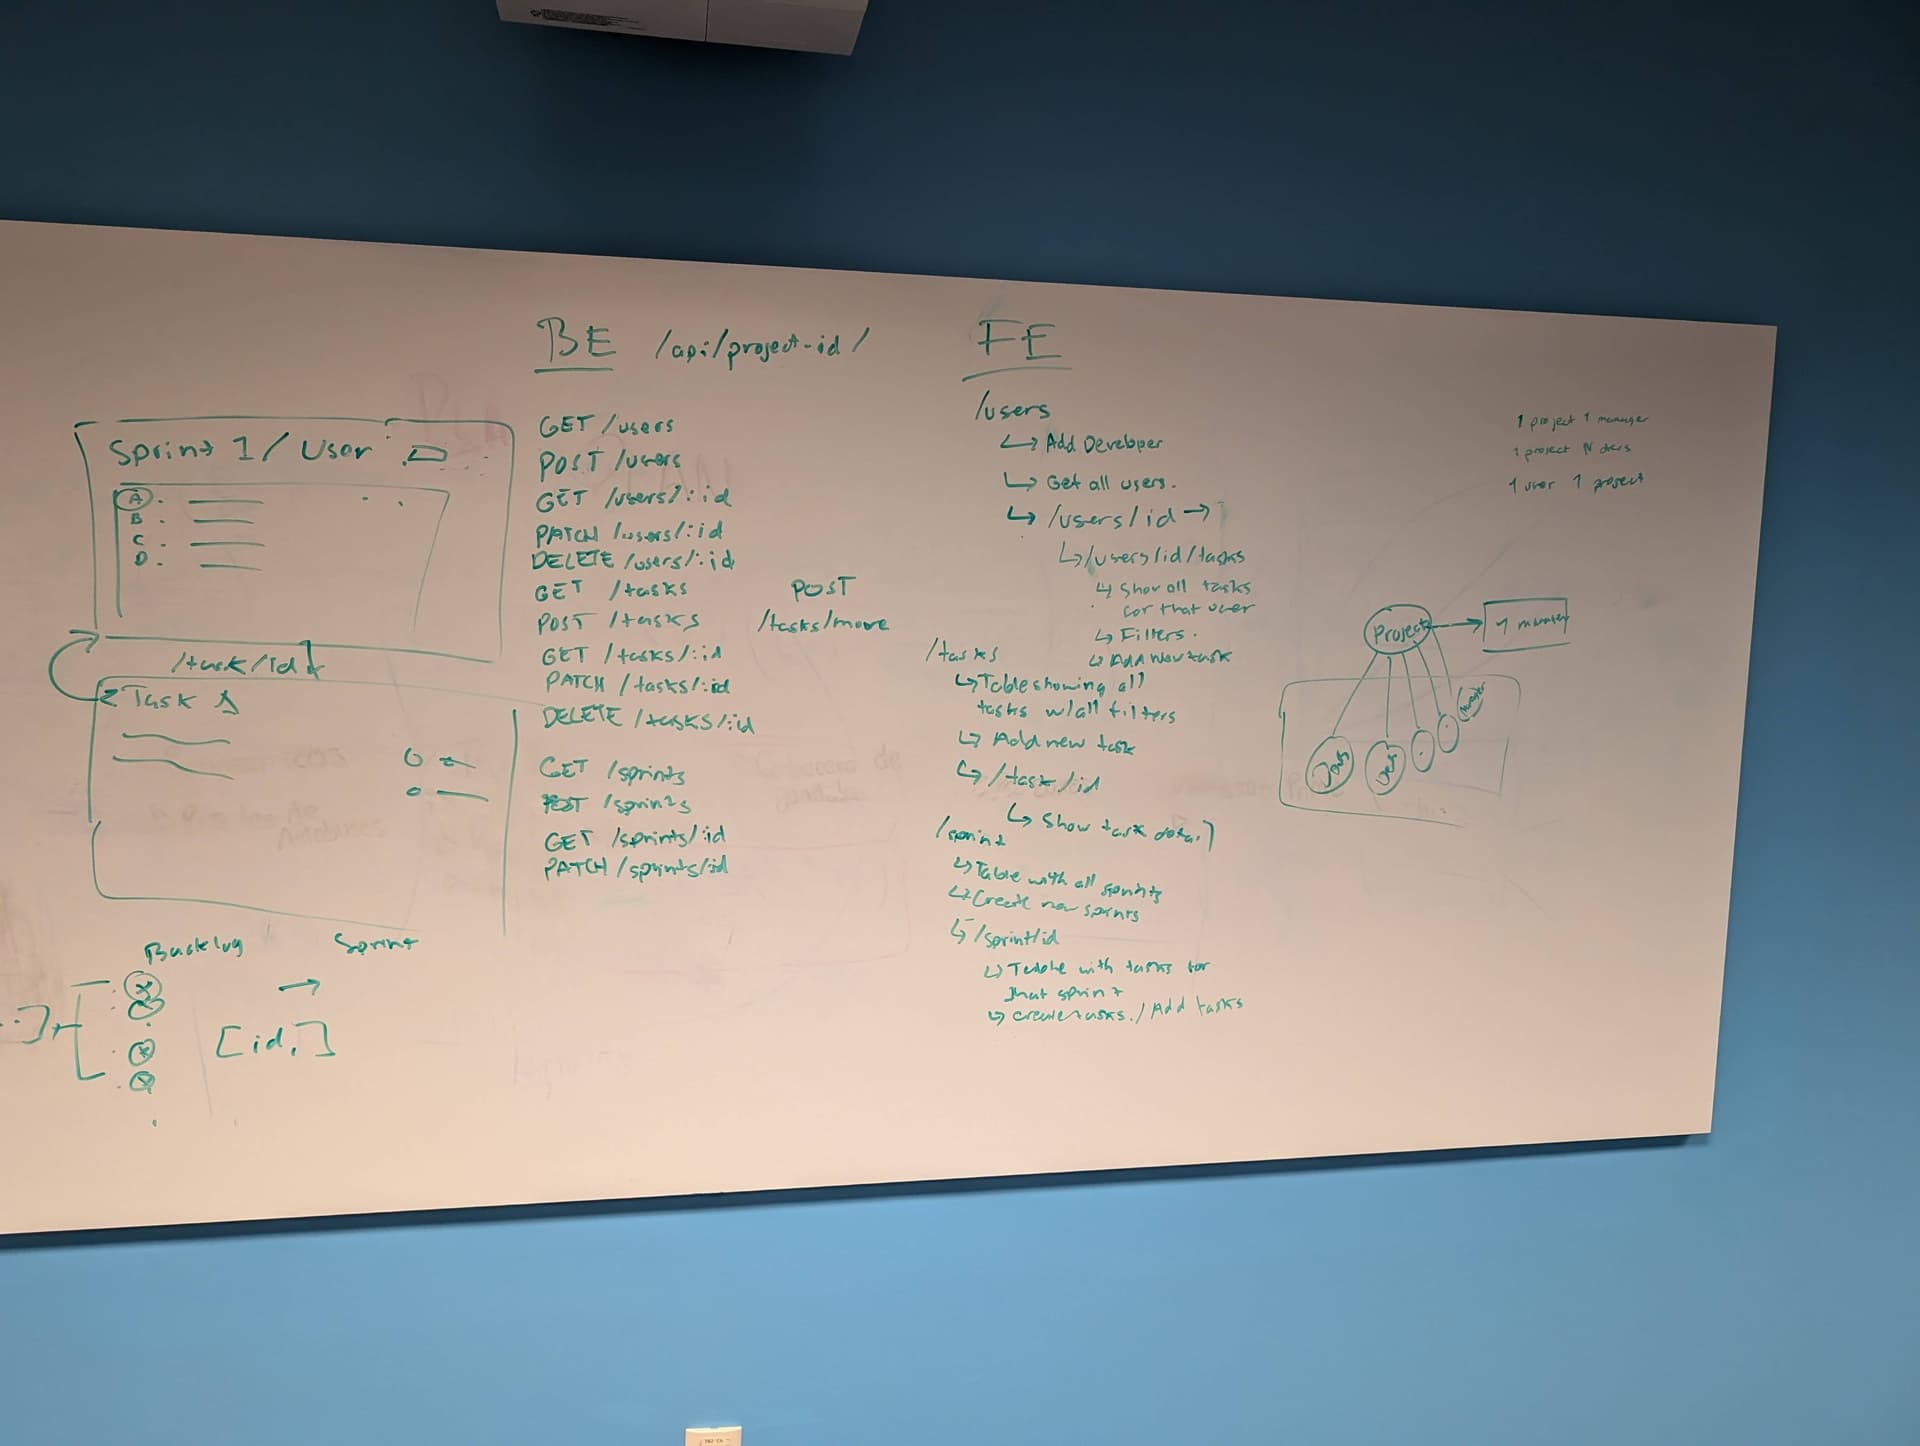 Sprint 1 / User
A.
B.
C.
D.
/task/id
Task A
Backlog
Sprint
[id,]
BE /api/project-id/
GET /users
POST /users
GET /users/:id
PATCH /users/:id
DELETE /users/:id
GET /tasks
POST /tasks
GET /tasks/:id
PATCH /tasks/:id
DELETE /tasks/:id
GET /sprints
POST /sprints
GET /sprints/:id
PATCH /sprints/:id
POST
/tasks/move
FE
/users
Add Developer
Get all users.
/users/id
/users/id/tasks
Show all tasks
for that user
Filters.
Add New task
/tasks
Table showing all
tasks w/all filters
Add new task
/task/id
Show task detail
/sprint
Table with all sprints
Create new sprints
/sprint/id
Table with tasks for
that sprint
create tasks. / Add tasks
1 project 1 manager
1 project N devs
1 user 1 project
Project
1 manager